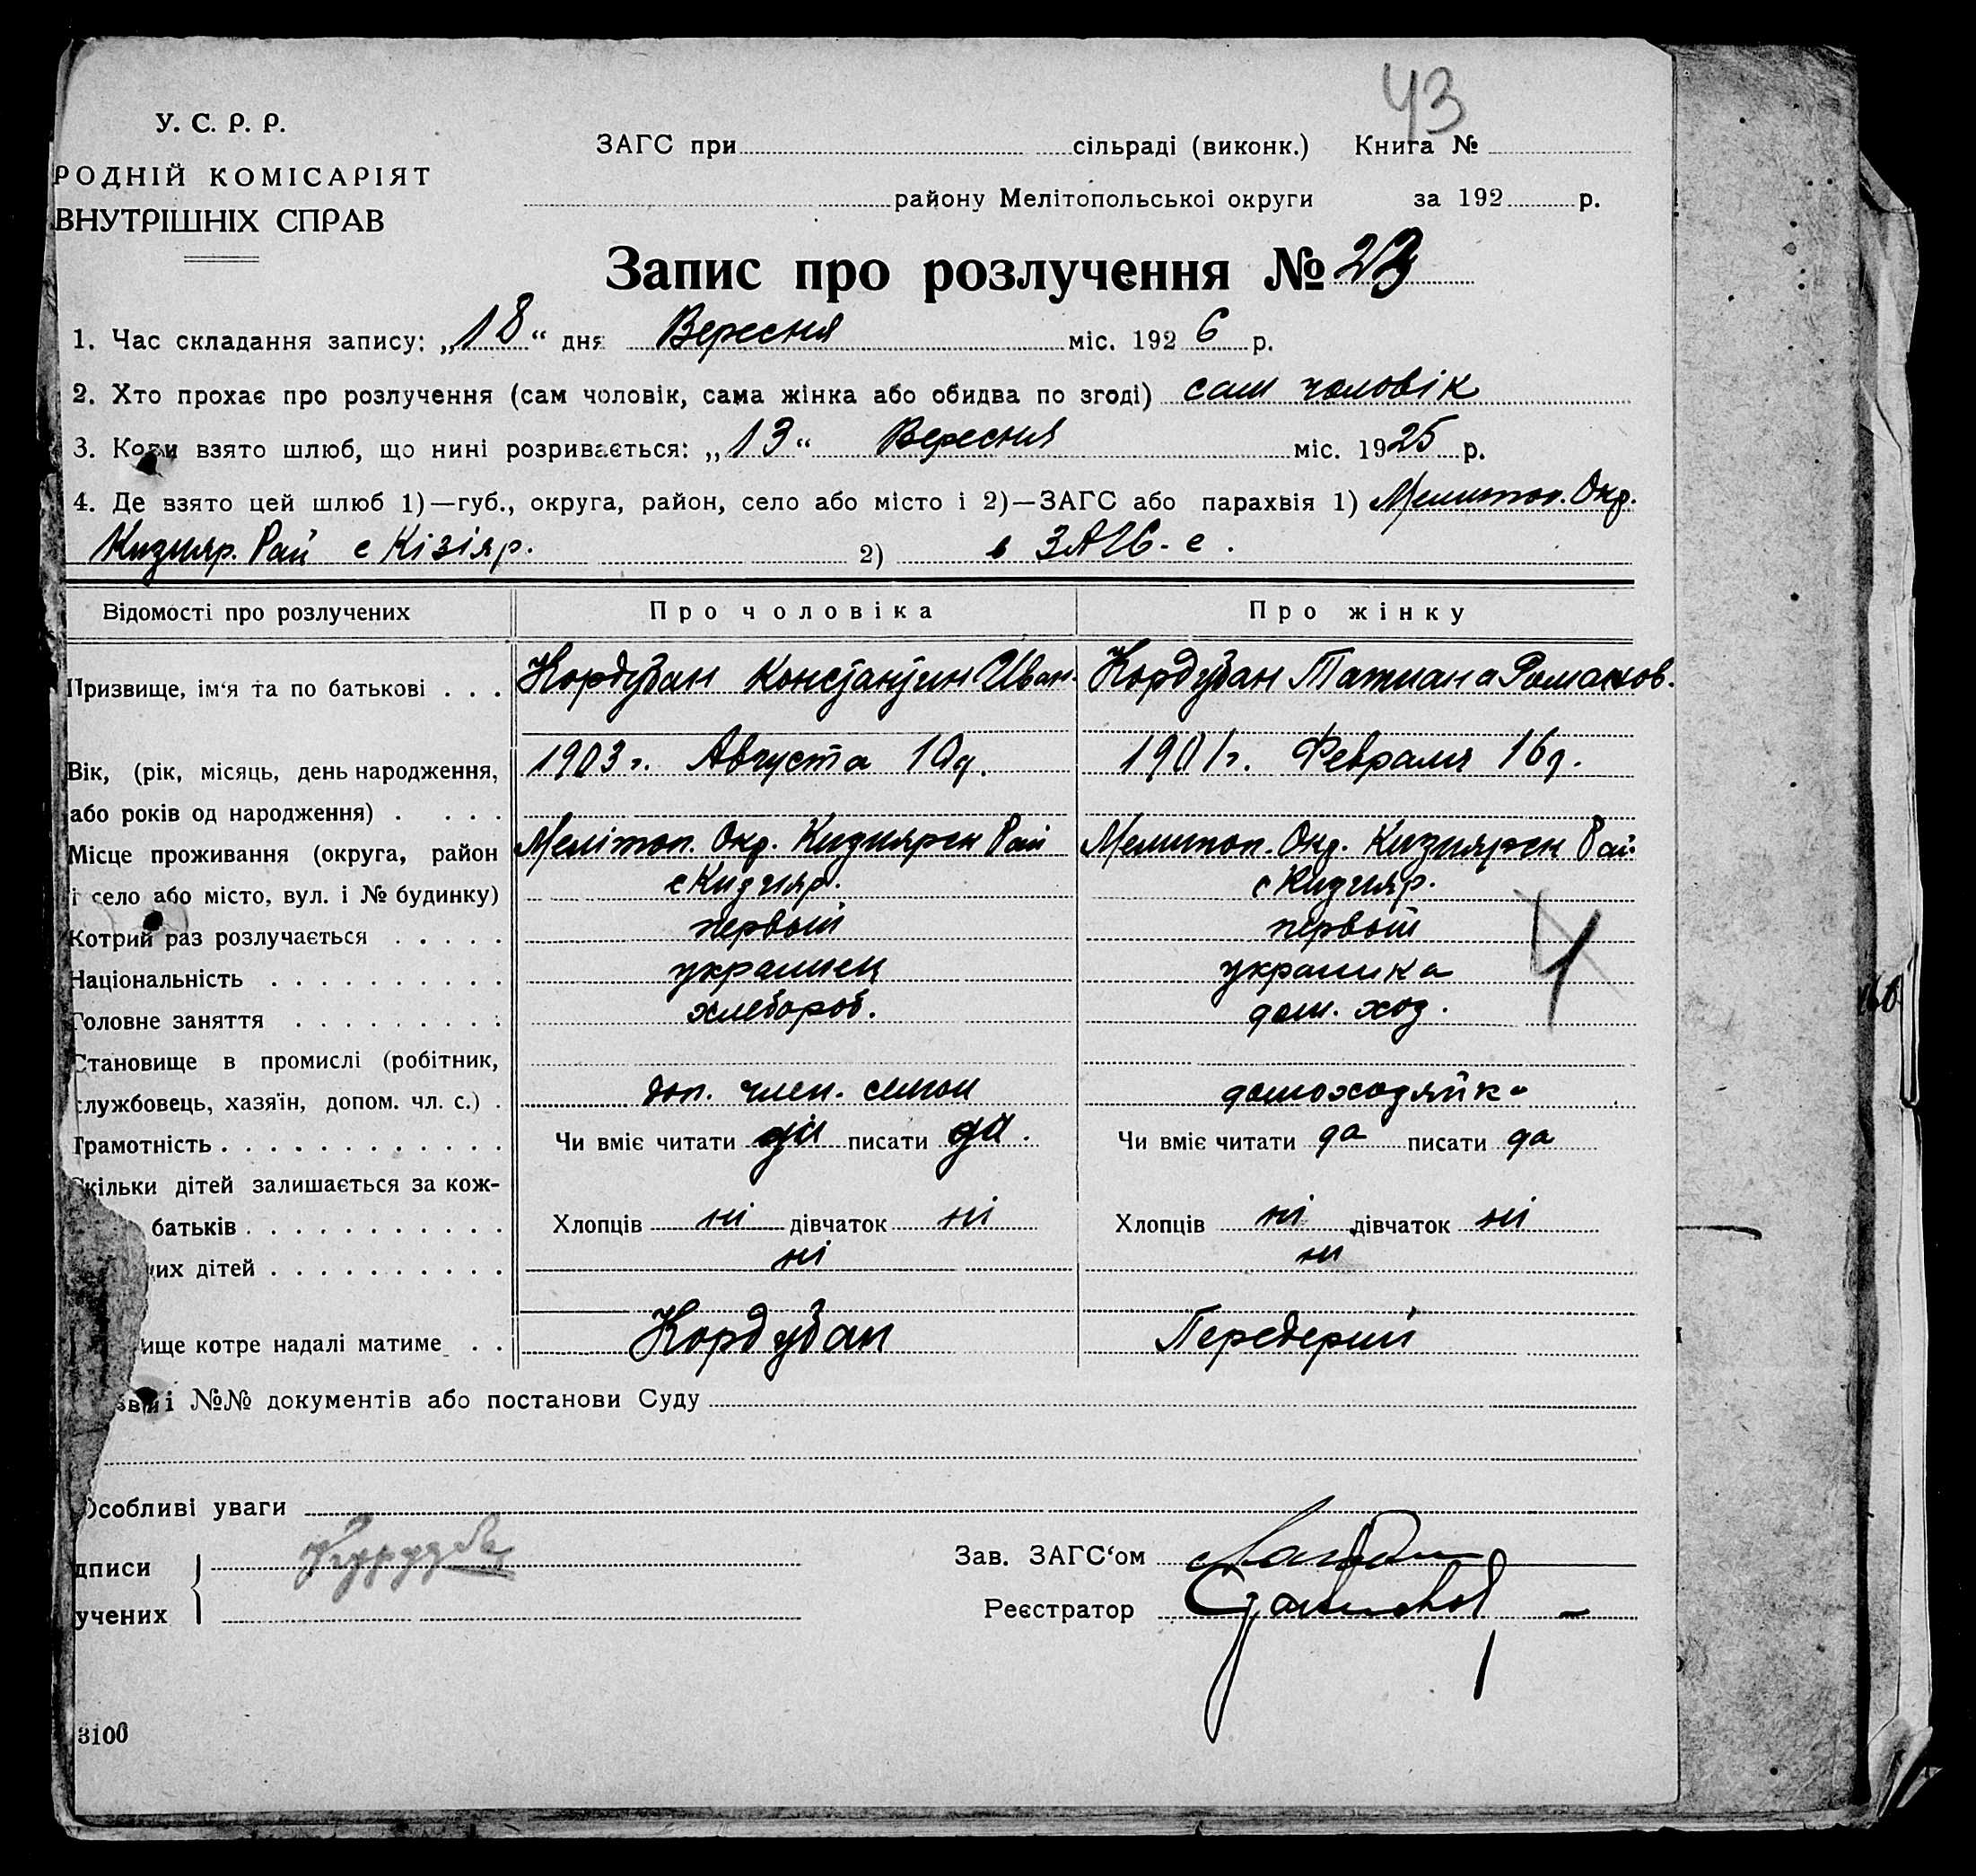 43
У. С. Р. Р.
РОДНІЙ КОМІСАРІЯТ
ВНУТРІШНІХ СПРАВ
ЗАГС при сільраді (виконк.) Книга №
району Мелітопольської округи за 192 р.
Запис про розлучення № 23
1. Час складання запису: „18“ дня Вересня міс. 1926 р.
2. Хто прохає про розлучення (сам чоловік, сама жінка або обидва по згоді) сам чоловік
3. Коли взято шлюб, що нині розривається: „13“ Вересня міс. 1925 р.
4. Де взято цей шлюб 1)—губ., округа, район, село або місто і 2)—ЗАГС або парахвія 1) Мелитоп. Окр.
Кизияр. Рай с Кізіяр. 2) в ЗАГС-е.
Відомості про розлучених Про чоловіка Про жінку
Призвище, ім‘я та по батькові . . . Кордубан Константин Иван. Кордубан Татиана Романов.
Вік, (рік, місяць, день народження, 1903 г. Августа 10 д. 1901 г. Февраля 16 д.
або років од народження) . . . .
Місце проживання (округа, район Мелітоп. Окр. Кизиярск Рай Мелитоп. Окр. Кизиярск Рай.
і село або місто, вул. і № будинку) с Кизияр. с Кизияр.
Котрий раз розлучається . . . . . первый первый
Національність . . . . . . . . . . украинец украинка
Головне заняття . . . . . . . . . хлебороб. дом. хоз. 4
Становище в промислі (робітник,
службовець, хазяїн, допом. чл. с.) . доп. член. семьи домохозяйка
Грамотність . . . . . . . . . . . . . Чи вміє читати да писати да. Чи вміє читати да писати да
Скільки дітей залишається за кож-
батьків . . . . . . . . . . . Хлопців ні дівчаток ні Хлопців ні дівчаток ні
их дітей . . . . . . . . . . ні ни
ище котре надалі матиме . . Кордубан Передерий
зви і №№ документів або постанови Суду
Особливі уваги
дписи Зав. ЗАГС‘ом
учених Реєстратор
3100